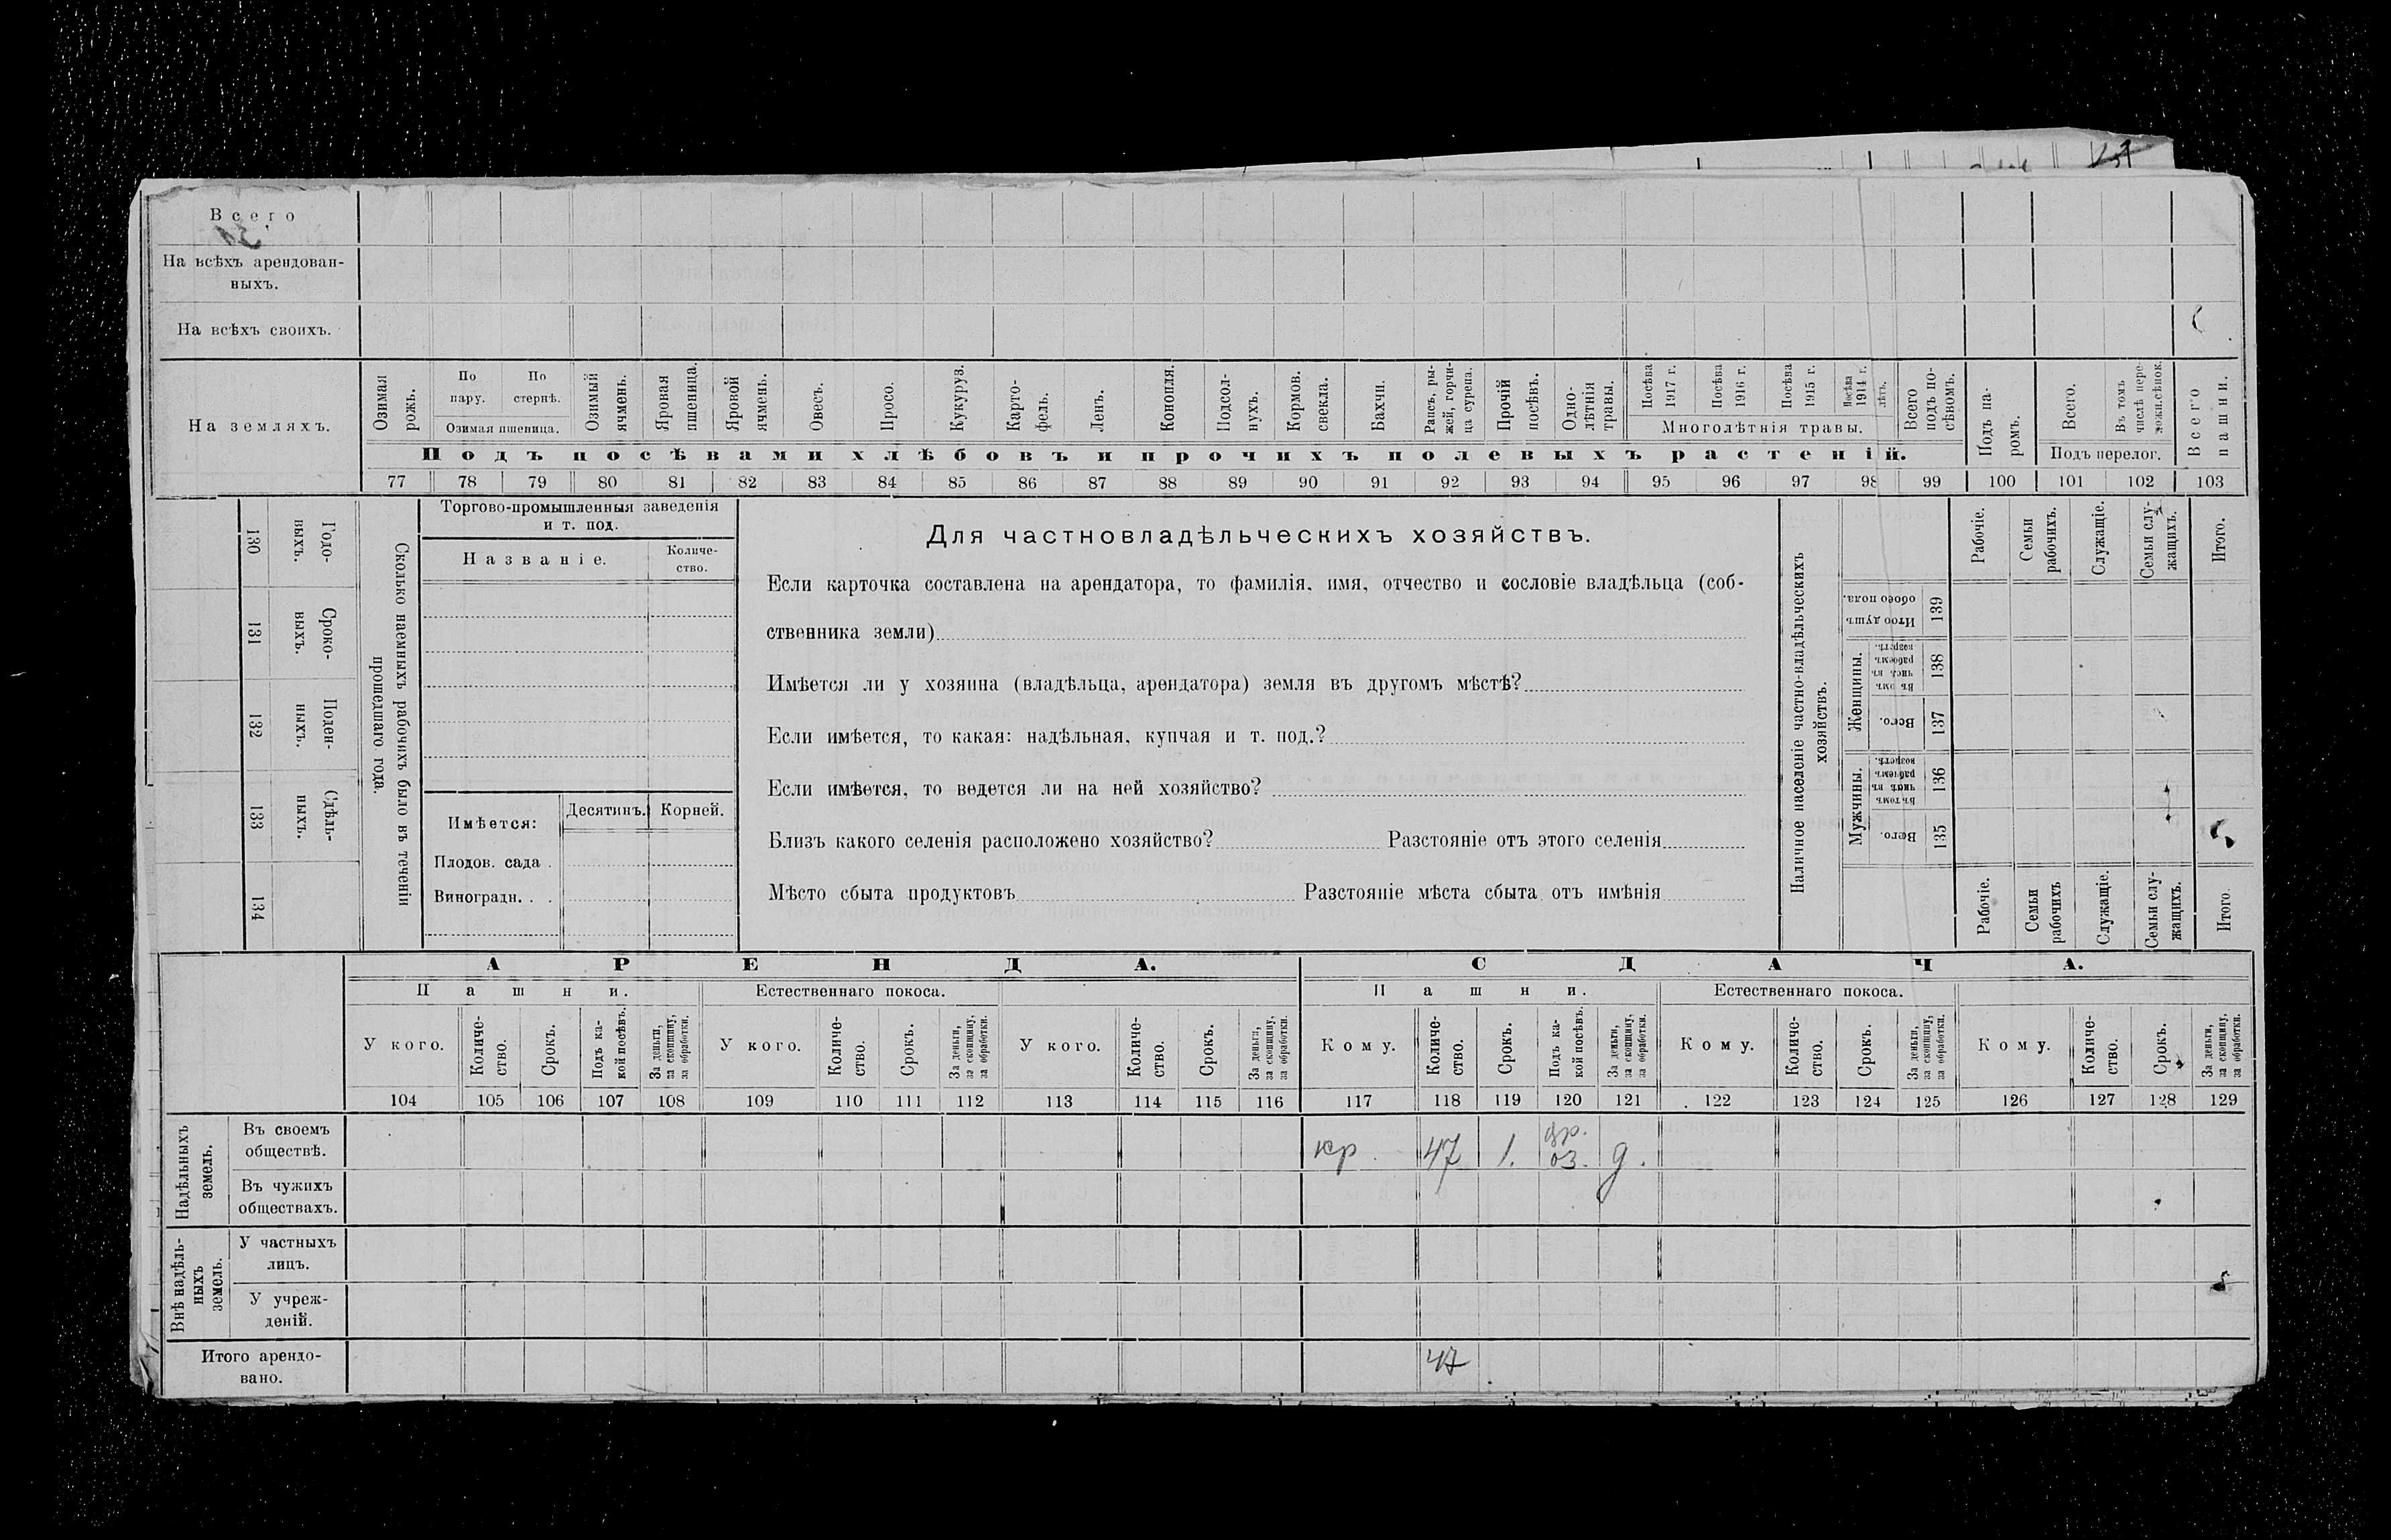 Всего
На всѣхъ арендован-
ныхъ.
На всѣхъ своихъ.
На земляхъ.
Озимая рожь.
По пару.
По стернѣ.
Озимая пшеница.
Озимый ячмень.
Яровая пшеница.
Яровой ячмень.
Овесъ.
Просо.
Кукуруз.
Карто-
фель.
Ленъ.
Конопля.
Подсол-
нухъ.
Кормов.
свекла.
Бахчи.
Рапсъ, ры-
жей, горчи-
ца сурепа.
Прочій
посѣвъ.
Одно-
лѣтнія
травы.
Посѣва
1917 г.
Посѣва
1916 г.
Посѣва
1915 г.
Посѣва
1914 г.
лѣтъ.
Многолѣтнія травы.
Всего
подъ по-
сѣвомъ.
Подъ па-
ромъ.
Всего.
Въ томъ
числѣ пере-
Подъ перелог.
Всего
пашни.
Подъ посѣвами хлѣбовъ и прочихъ полевыхъ растеній.
77 78 79 80 81 82 83 84 85 86 87 88 89 90 91 92 93 94 95 96 97 98 99 100 101 102 103
130
Годо-
выхъ.
131
Сроко-
выхъ.
132
Поден-
ныхъ.
133
Сдѣль-
ныхъ.
134
Сколько наемныхъ рабочихъ было въ теченіи
прошедшаго года.
Торгово-промышленныя заведенія
и т. под.
Названіе.
Количе-
ство.
Имѣется:
Десятинъ.
Корней.
Плодов. сада .
Виноградн. . .
Для частновладѣльческихъ хозяйствъ.
Если карточка составлена на арендатора, то фамилія, имя, отчество и сословіе владѣльца (соб-
ственника земли)
Имѣется ли у хозяина (владѣльца, арендатора) земля въ другомъ мѣстѣ?
Если имѣется, то какая: надѣльная, купчая и т. под.?
Если имѣется, то ведется ли на ней хозяйство?
Близъ какого селенія расположено хозяйство? Разстояніе отъ этого селенія
Мѣсто сбыта продуктовъ Разстояніе мѣста сбыта отъ имѣнія
Наличное населеніе частно-владѣльческихъ
хозяйствъ.
Рабочіе.
Семьи
рабочихъ.
Служащіе.
Семьи слу-
жащихъ.
Итого.
Итого душъ
обоего пола.
139
Женщины.
Въ томъ
числ. въ
рабочемъ
возрастѣ.
138
Всего.
137
Мужчины.
Въ томъ
числѣ въ
рабочемъ
возрастѣ.
136
Всего.
135
Рабочіе.
Семьи
рабочихъ
Служащіе.
Семьи слу-
жащихъ.
Итого
АРЕНДА.
СДАЧА.
Пашни.
Естественнаго покоса.
Пашни.
Естественнаго покоса.
У кого.
Количе-
ство.
Срокъ.
Подъ ка-
кой посѣвъ.
За деньги,
за скопщину,
за обработки.
У кого.
Количе-
ство.
Срокъ.
За деньги,
за скопщину,
за обработки.
У кого.
Количе-
ство.
Срокъ.
За деньги,
за скопщину,
за обработки.
Кому.
Количе-
ство.
Срокъ.
Подъ ка-
кой посѣвъ.
За деньги,
за скопщину,
за обработки.
Кому.
Количе-
ство.
Срокъ.
За деньги,
за скопщину,
за обработки.
Кому.
Количе-
ство.
Срокъ.
За деньги,
за скопщину,
за обработки.
104 105 106 107 108 109 110 111 112 113 114 115 116 117 118 119 120 121 122 123 124 125 126 127 128 129
Надѣльныхъ
земель.
Въ своемъ
обществѣ.
кр. 47 1. яр.
оз. д.
Въ чужихъ
обществахъ.
Внѣ надѣль-
ныхъ
земель.
У частныхъ
лицъ.
У учреж-
деній.
Итого арендо-
вано.
47